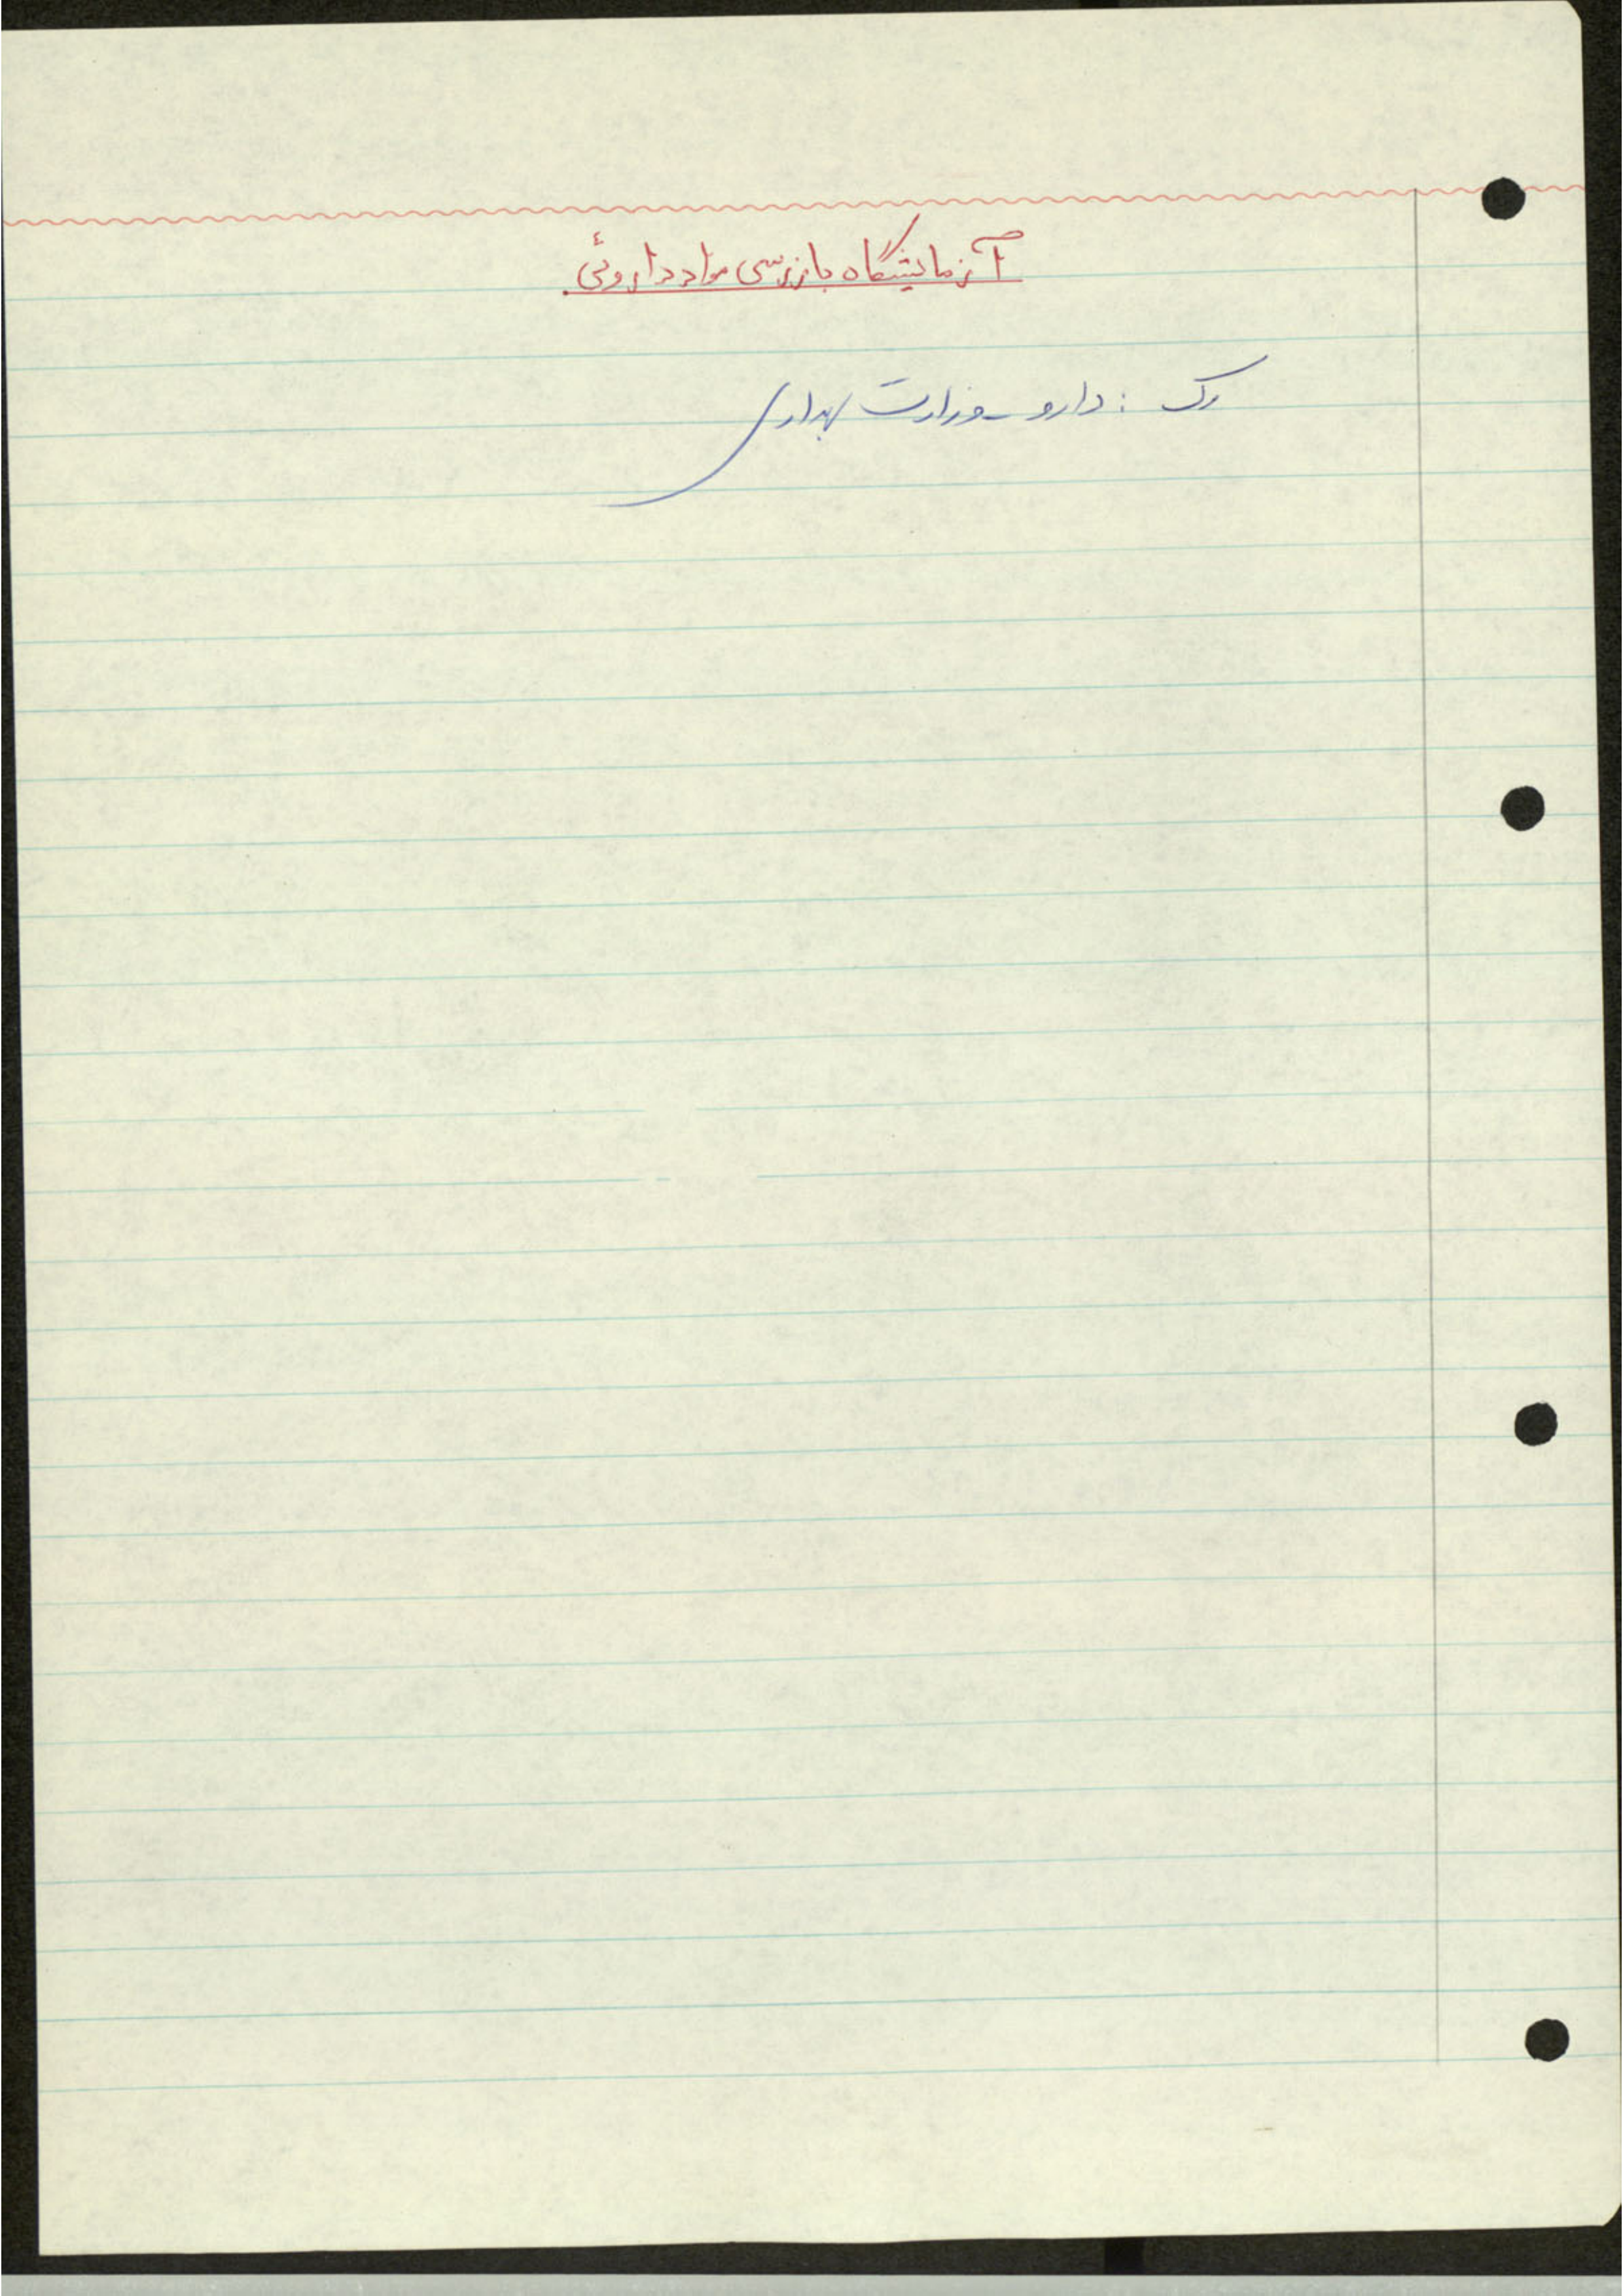 آزمایشگاه بازرسی مواد داروئی
رک : دارو - وزارت بهداری